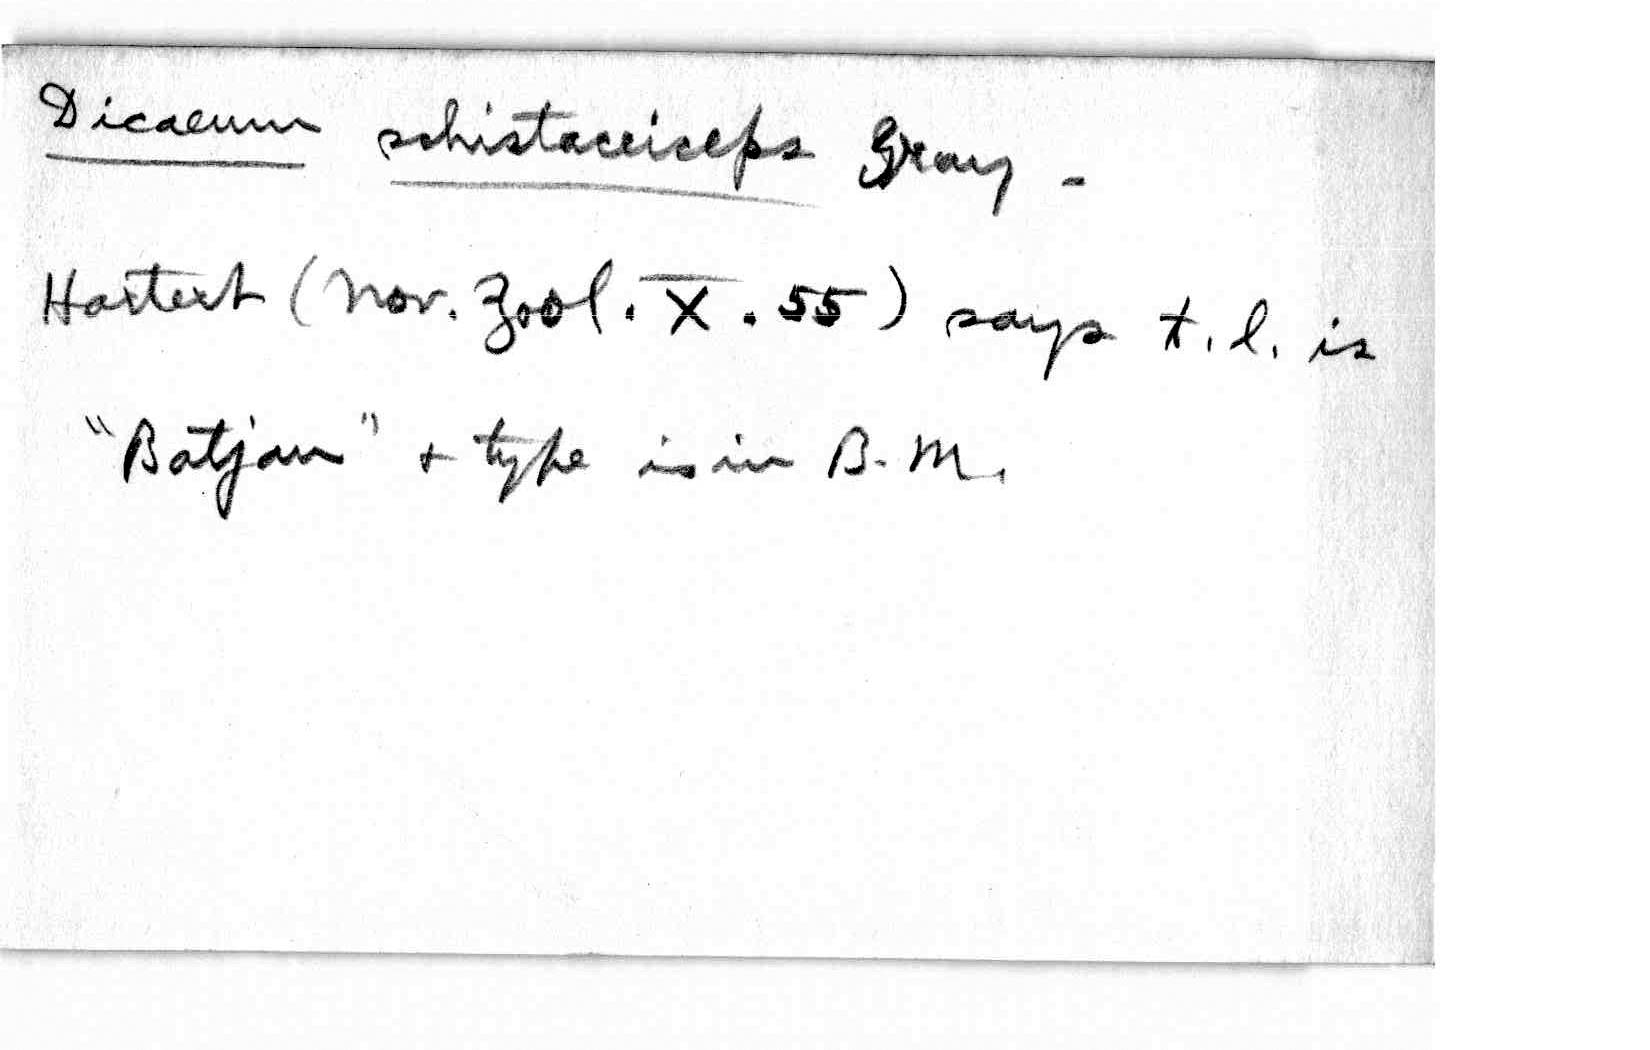 Dicaeum schistaceiceps Gray -
Hartert (Nov. Zool. X. 55) says t.l. is
"Batjan" + type is in B.M.